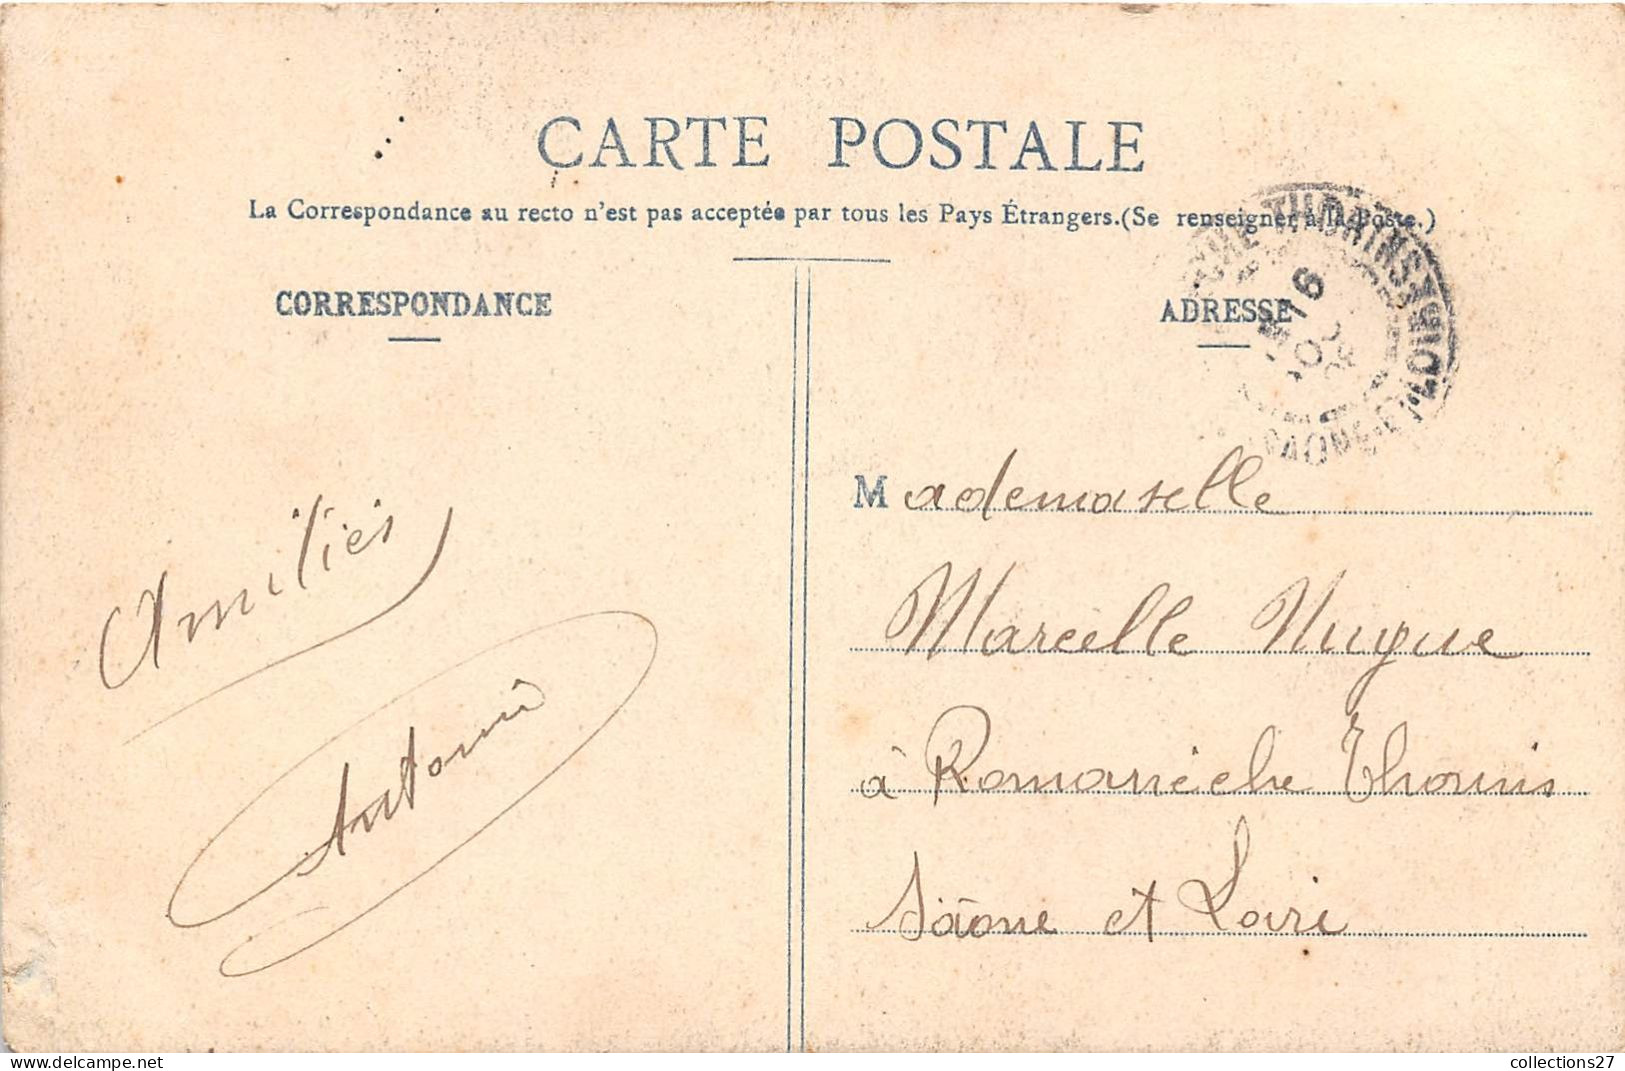 CARTE POSTALE
La Correspondance au recto n'est pas acceptée par tous les Pays Étrangers.(Se renseigner à la Poste.)
CORRESPONDANCE
ADRESSE
THORINS
16
SAONE-ET-
Amitiés
Antoni
Mademoiselle
Marcelle Nugue
à Romanèche Thorins
Saône et Loire
collections27